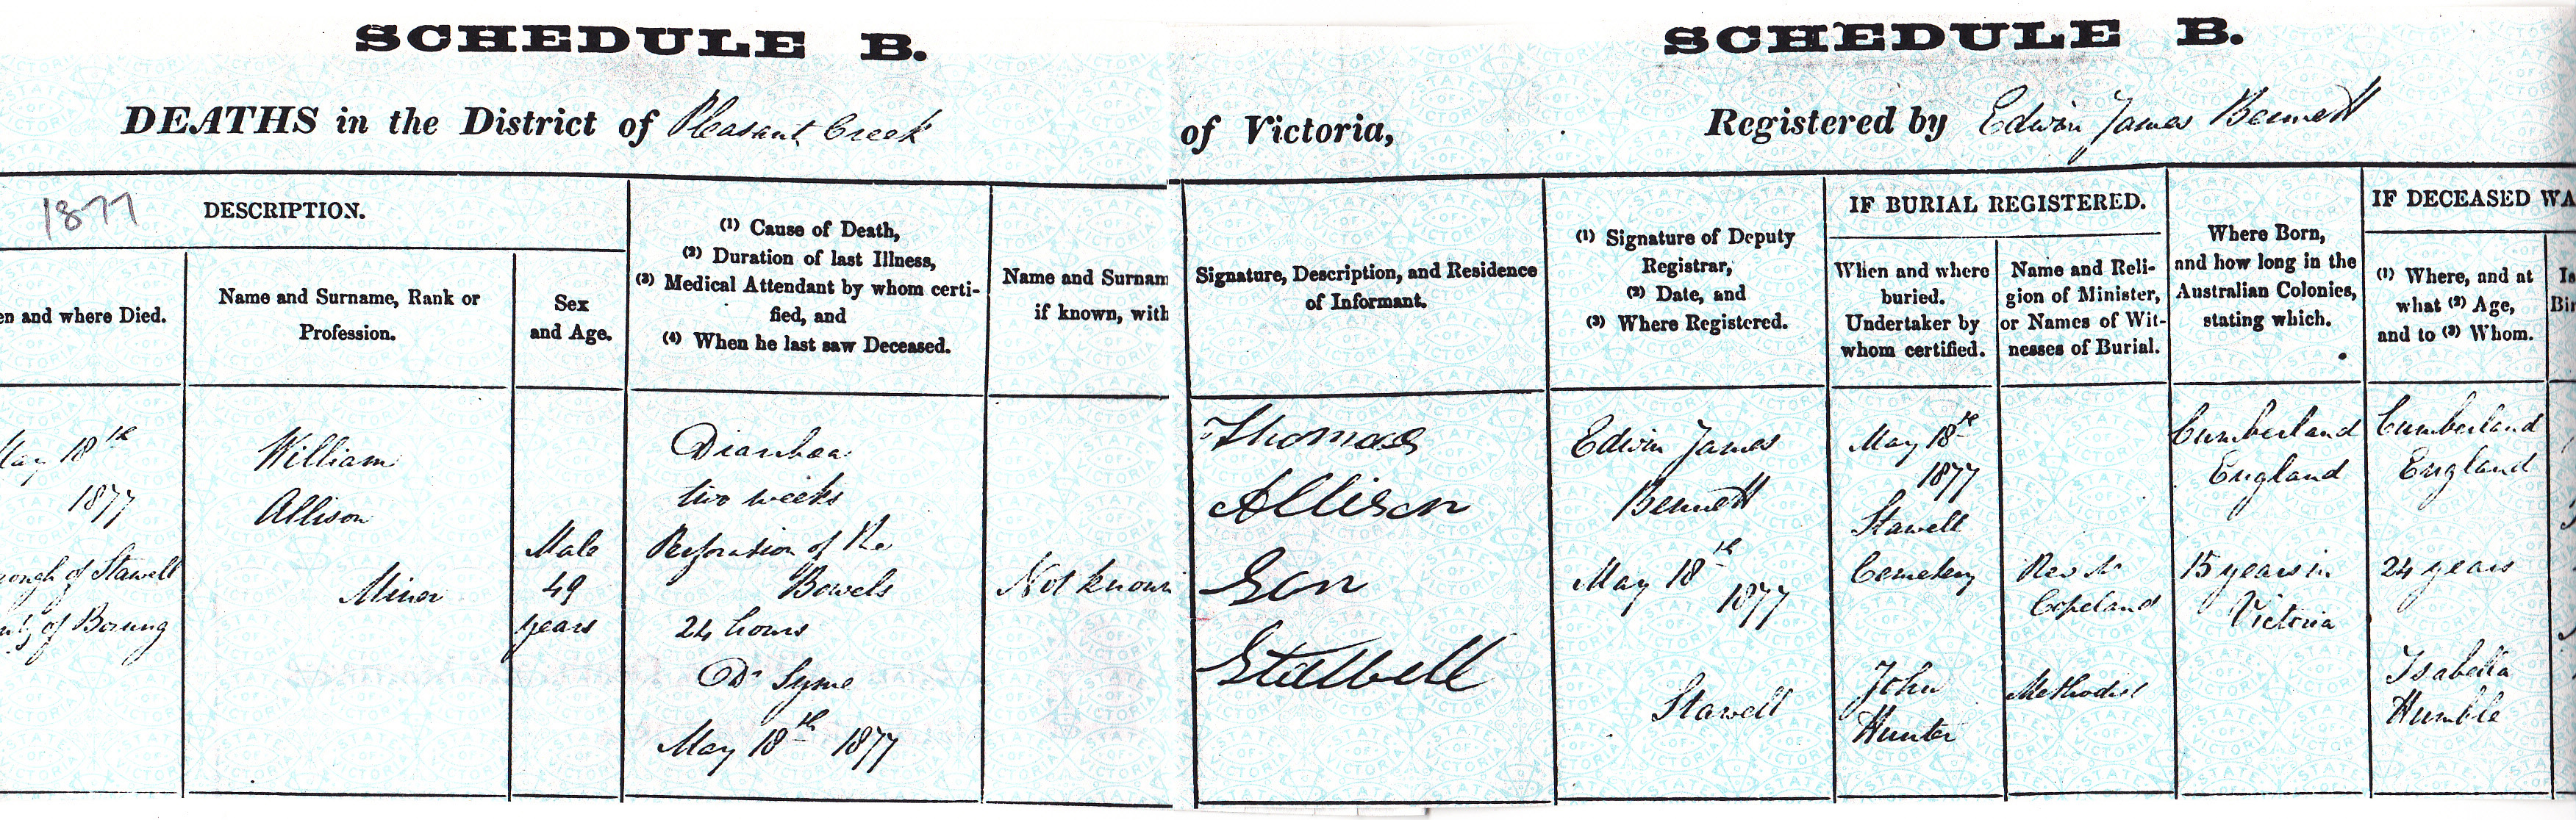 SCHEDULE B.
DEATHS in the District of Pleasant Creek
1877
DESCRIPTION.
en and where Died.
Name and Surname, Rank or
Profession.
Sex
and Age.
(1) Cause of Death,
(2) Duration of last Illness,
(3) Medical Attendant by whom certi-
fied, and
(4) When he last saw Deceased.
Name and Surnam
if known, with
May 18th
1877
ough of Stawell
nty of Borung
William
Allison
Miner
Male
49
years
Diarrhoea
two weeks
Perforation of the
Bowels
24 hours
Dr Syme
May 18th 1877
Not known
SCHEDULE B.
of Victoria,
Registered by Edwin James Bennett
Signature, Description, and Residence
of Informant.
(1) Signature of Deputy
Registrar,
(2) Date, and
(3) Where Registered.
IF BURIAL REGISTERED.
When and where
buried.
Undertaker by
whom certified.
Name and Reli-
gion of Minister,
or Names of Wit-
nesses of Burial.
Where Born,
and how long in the
Australian Colonies,
stating which.
IF DECEASED WA
(1) Where, and at
what (2) Age,
and to (3) Whom.
Is
Bir
Thomas
Allison
Son
Stawell
Edwin James
Bennett
May 18th
1877
Stawell
May 18th
1877
Stawell
Cemetery
John
Hunter
Rev
Copeland
Methodist
Cumberland
England
15 years in
Victoria
Cumberland
England
24 years
Isabella
Humble